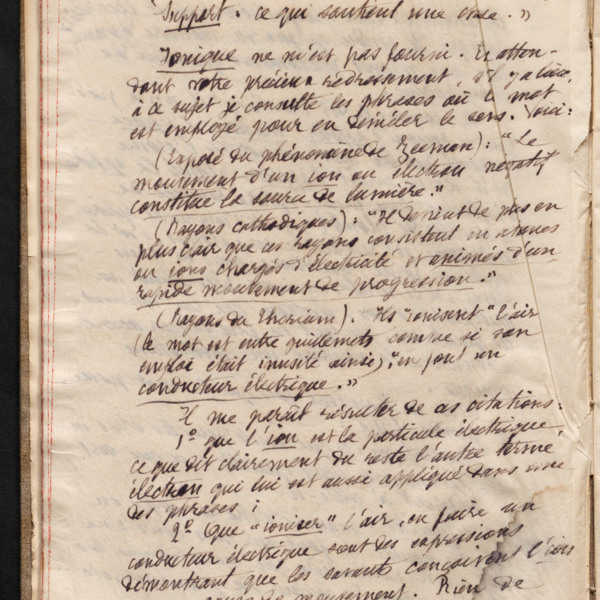 Support. ce qui soutient une chose. »
Ionique ne m'est pas fourni. En atten-
dant votre précieux redressement, s'il y a lieu,
à ce sujet je consulte les phrases où le mot
est employé pour en démêler le sens. Voici:
(Exposé du phénomène de Zeeman): "Le
mouvement d'un ion ou électron négatif
constitue la source de lumière."
(Rayons cathodiques): "Il devient de plus en
plus clair que ces rayons consistent en atomes
ou ions chargés d'électricité et animés d'un
rapide mouvement de progression."
(Rayons du Thorium). "Ils "ionisent" l'air
(le mot est entre guillemets comme si son
emploi était inusité ainsi), en font un
conducteur électrique. »
Il me paraît résulter de ces citations:
1º que l'ion est la particule électrique,
ce que dit clairement du reste l'autre terme,
électron qui lui est aussi appliqué dans une
des phrases;
2º Que "ioniser" l'air, en faire un
conducteur électrique sont des expressions
démontrant que les savants conçoivent l'ion
mouvement. Rien de